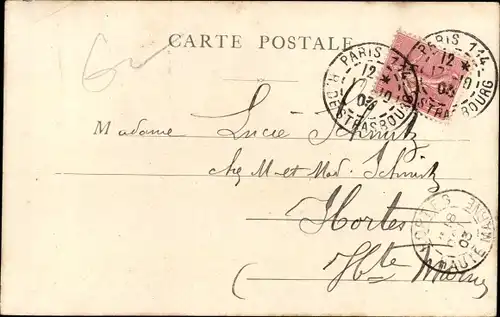 CARTE POSTALE
PARIS 114
R. DE STRASBOURG
12 *
03
PARIS 114
12 *
03
STRASBOURG
Madame Lucie Schmitz
chez M et Mad. Schmitz
Hortes
(Hte Marne
HORTES
HAUTE MARNE
03